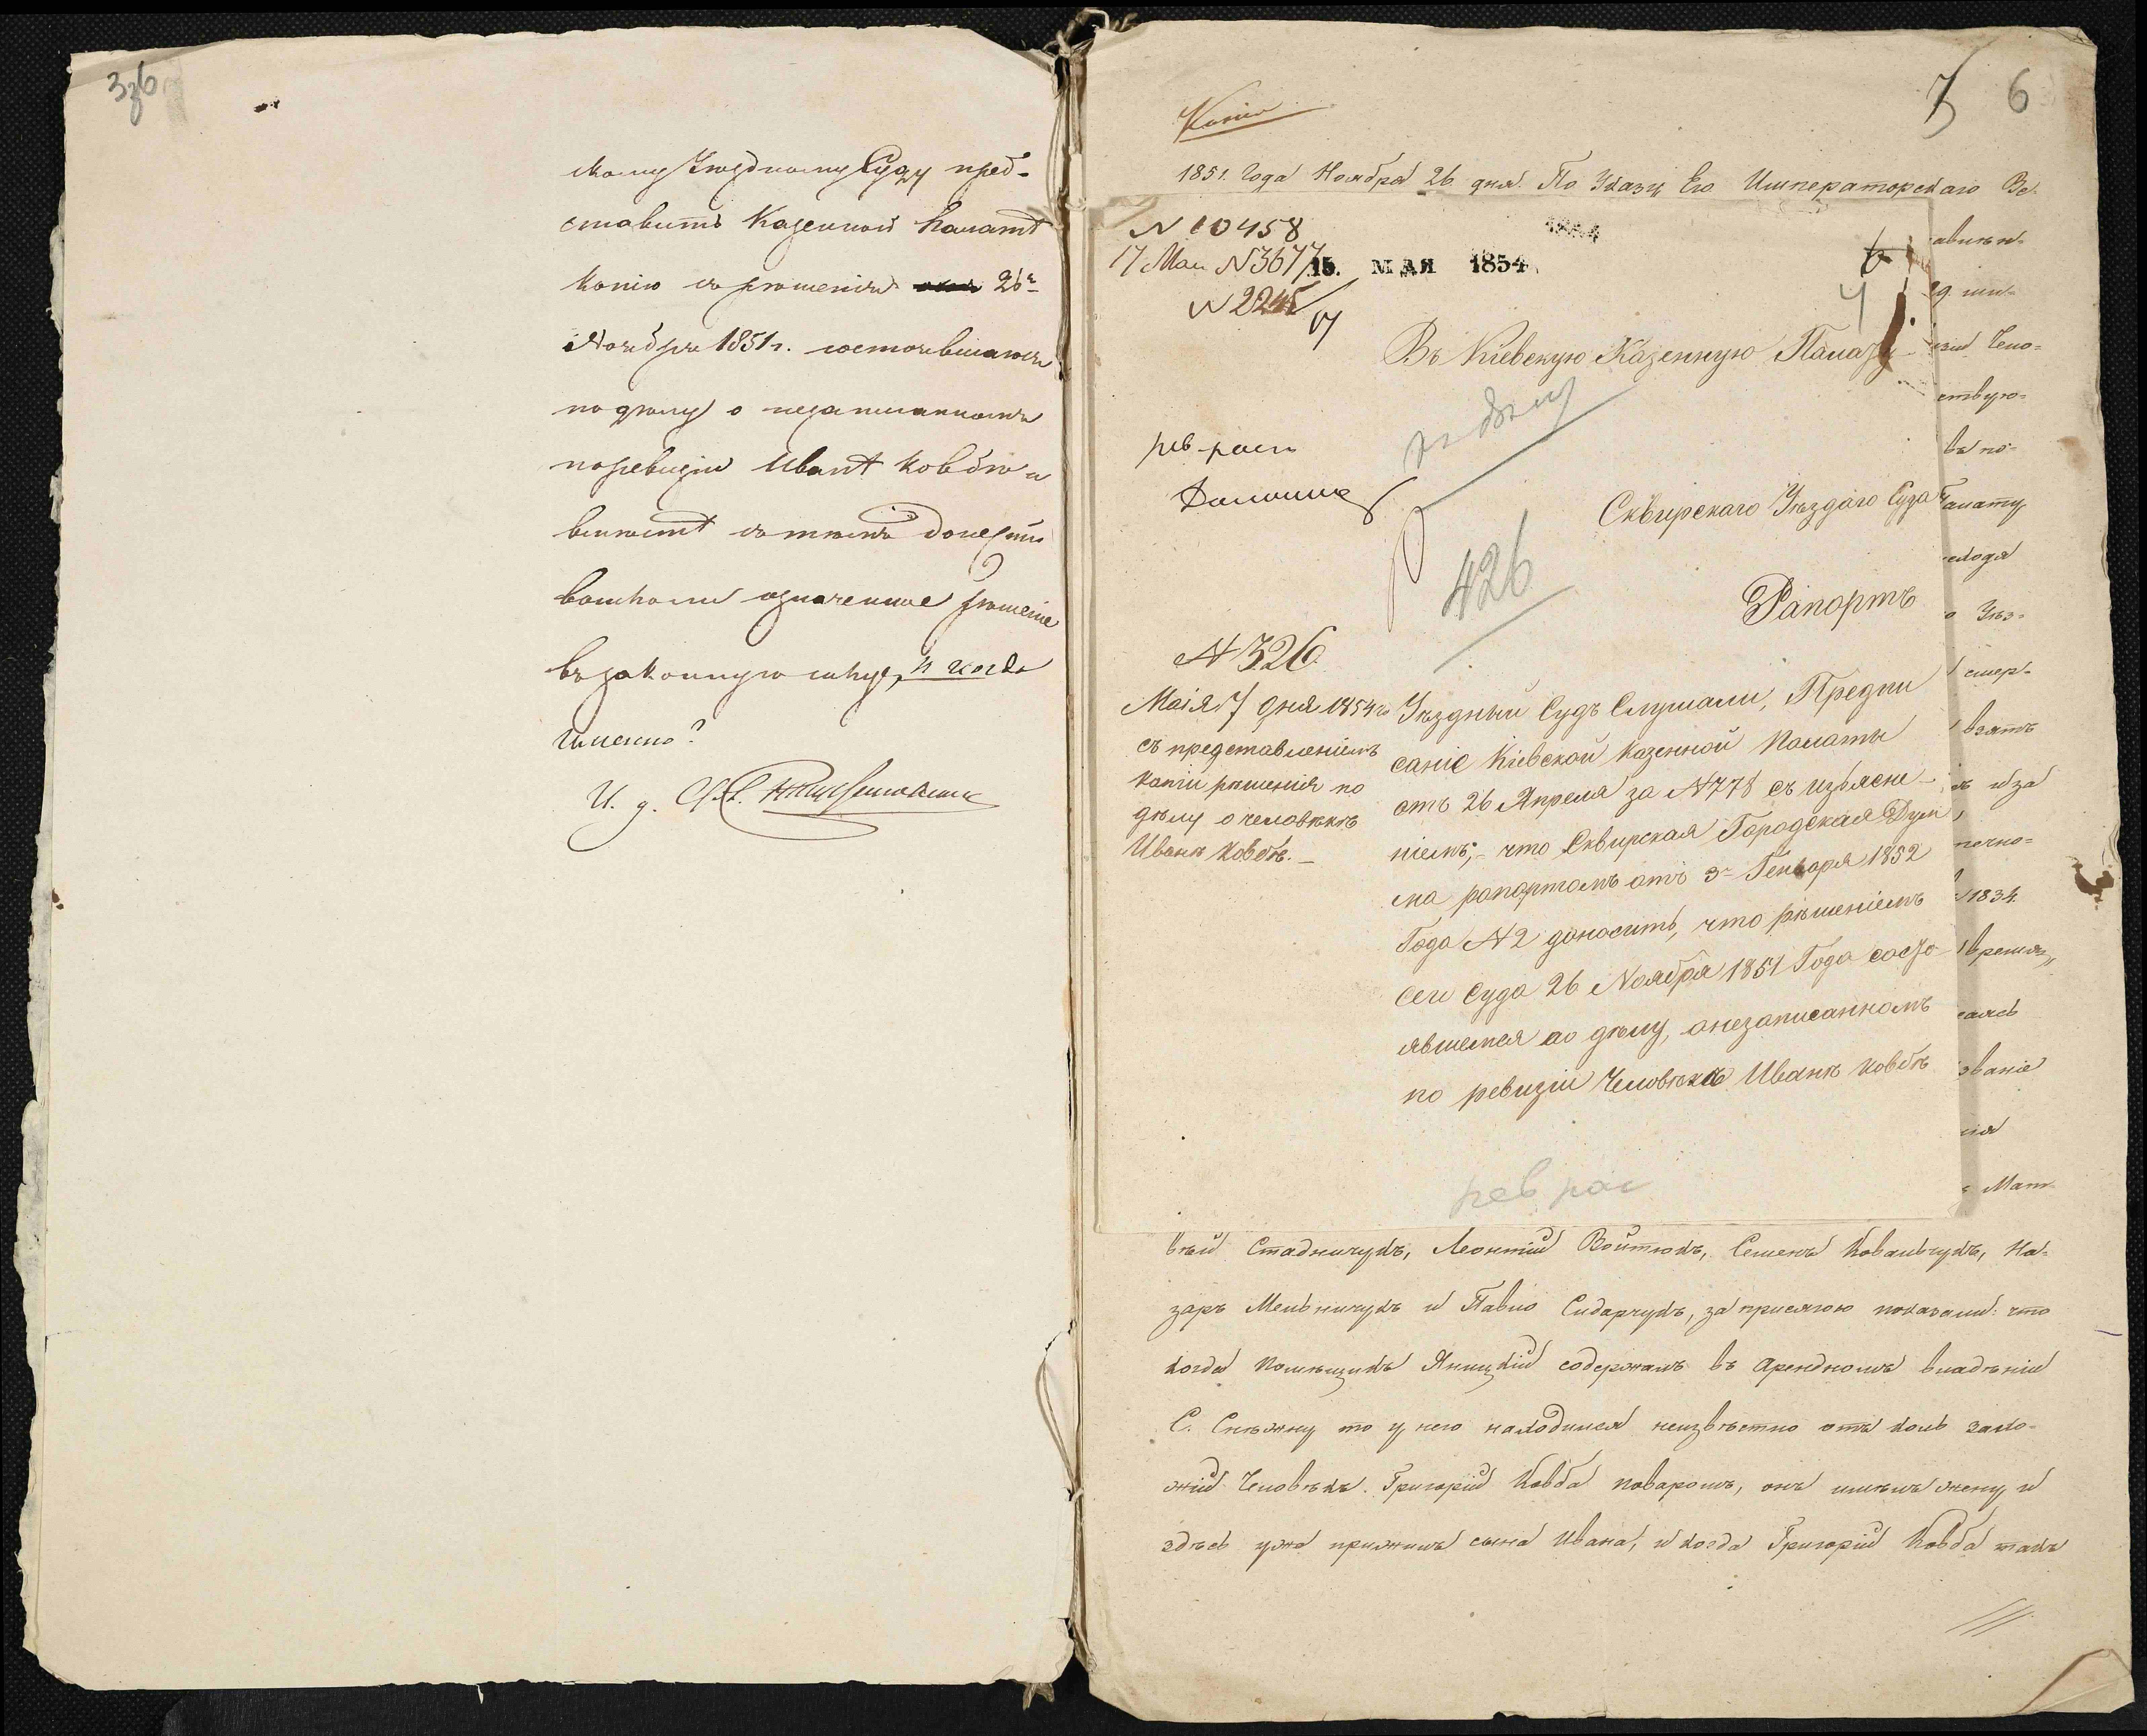 скому Уездному Суду пред-
ставить Казенной Палатѣ
копію съ рѣшенія 26го
Ноября 1851 г. состоявшагося
по дѣлу о незаписанномъ
по ревизіи Иванѣ Ковбѣ и
вмѣстѣ съ тѣмъ донести
вошло ли означенное рѣшеніе
въ законную силу, и когда
именно?
И. д.
7 6
Копія
1851. Года Ноября 26 дня. По Указу Его Императорскаго Ве-
N 10458
17 Мая N 3677
15. МАЯ 1854
N 2245
17
Въ Кіевскую Казенную Палату
рев. расп
426
Сквирскаго Уѣзднаго Суда
Рапортъ
N 326
Маія 7 дня 1854 го
съ представленіемъ
копіи рѣшенія по
дѣлу о человѣкѣ
Иванѣ Ковбѣ. —
Уѣздный Судъ Слушали, Предпи
саніе Кіевской Казенной Палаты
отъ 26 Апреля за N 778 съ изъясне-
ніемъ, - что Сквирская Городская Дум
ма рапортомъ отъ 3го Генваря 1852
Года N 2 доноситъ, что рѣшеніемъ
сего Суда 26 Ноября 1851 Года состо-
явшемся по дѣлу, о незаписанномъ
по ревизіи Человѣкѣ Иванѣ Ковбѣ
рев рас
вѣй Стадничукъ, Леонтій Войтюкъ, Семенъ Ковальчукъ, На-
заръ Мельничукъ и Павло Сидарчукъ, за присягою показали: что
когда помѣщикъ Яницкій содержалъ въ арендномъ владѣніи
С. Снѣжну то у него находился неизвѣстно отъ коль захо-
жій Человѣкъ. Григорій Ковба поваромъ, онъ имѣлъ жену и
здѣсь уже прижилъ сына Ивана, и когда Григорій Ковба такъ